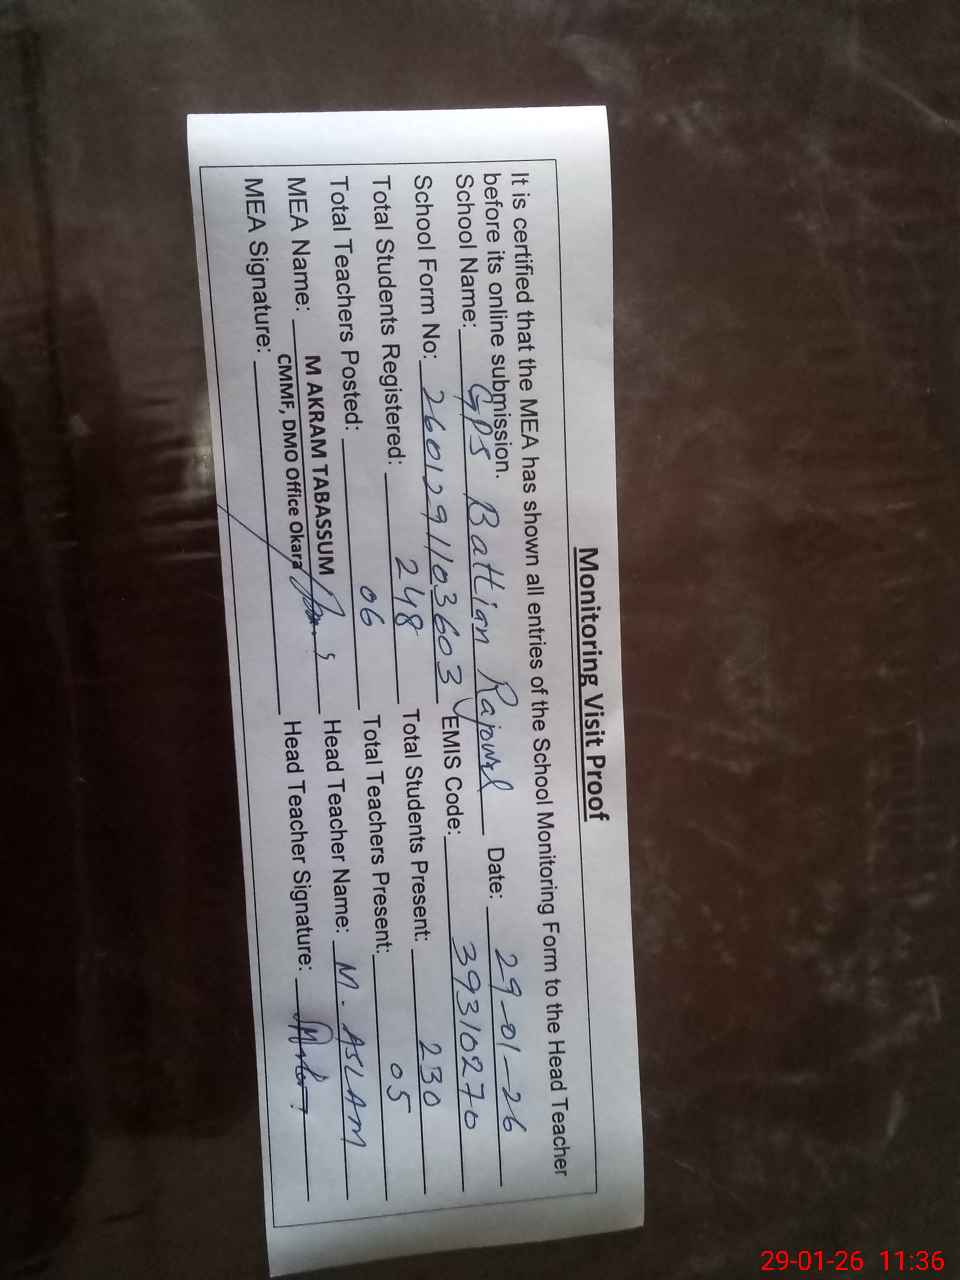 Monitoring Visit Proof
It is certified that the MEA has shown all entries of the School Monitoring Form to the Head Teacher
before its online submission.
School Name: GPS Battian Rajowal Date: 29-01-26
School Form No: 2601291103603 EMIS Code: 39310270
Total Students Registered: 248 Total Students Present: 230
Total Teachers Posted: 06 Total Teachers Present: 05
MEA Name: M AKRAM TABASSUM Head Teacher Name: M. ASLAM
CMMF, DMO Office Okara
MEA Signature: Head Teacher Signature:
29-01-26 11:36